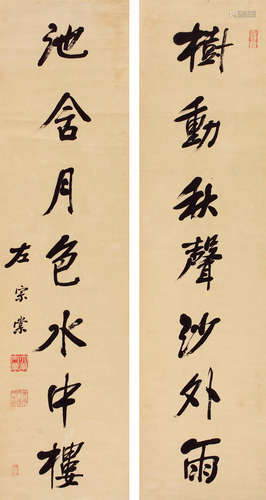 樹動秋聲沙外雨
池含月色水中樓
左宗棠